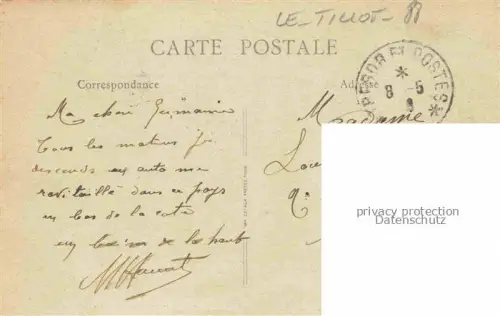 LE-TILLOT-88
CARTE POSTALE
Correspondance
Adresse
TRESOR ET POSTES
8 - 5
Ma chère Germaine
Tous les matins je
descends en auto me
ravitailler dans ce pays
en bas de la côte
en de la haut
Madame
Lou
privacy protection
Datenschutz